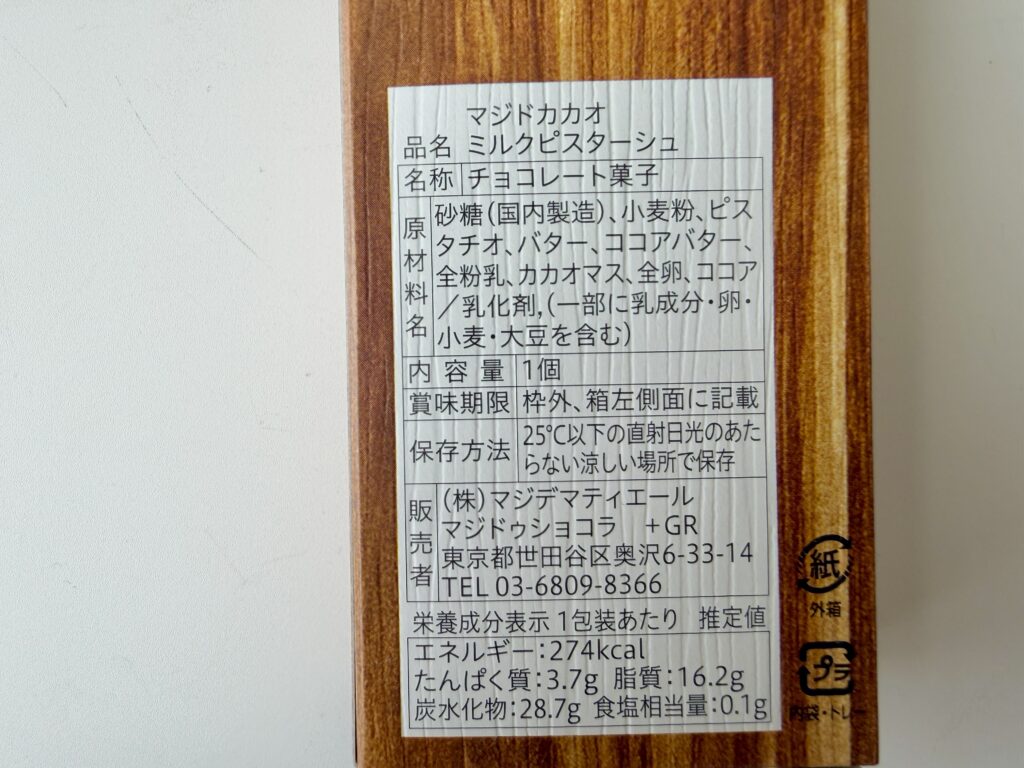 マジドカカオ
品名 ミルクピスターシュ
名称 チョコレート菓子
原材料名 砂糖(国内製造)、小麦粉、ピス
タチオ、バター、ココアバター、
全粉乳、カカオマス、全卵、ココア
/乳化剤,(一部に乳成分・卵・
小麦・大豆を含む)
内容量 1個
賞味期限 枠外、箱左側面に記載
保存方法 25℃以下の直射日光のあた
らない涼しい場所で保存
販売者 (株)マジデマティエール
マジドゥショコラ +GR
東京都世田谷区奥沢6-33-14
TEL 03-6809-8366
栄養成分表示 1包装あたり 推定値
エネルギー:274kcal
たんぱく質:3.7g 脂質:16.2g
炭水化物:28.7g 食塩相当量:0.1g
紙
外箱
プラ
内袋・トレー